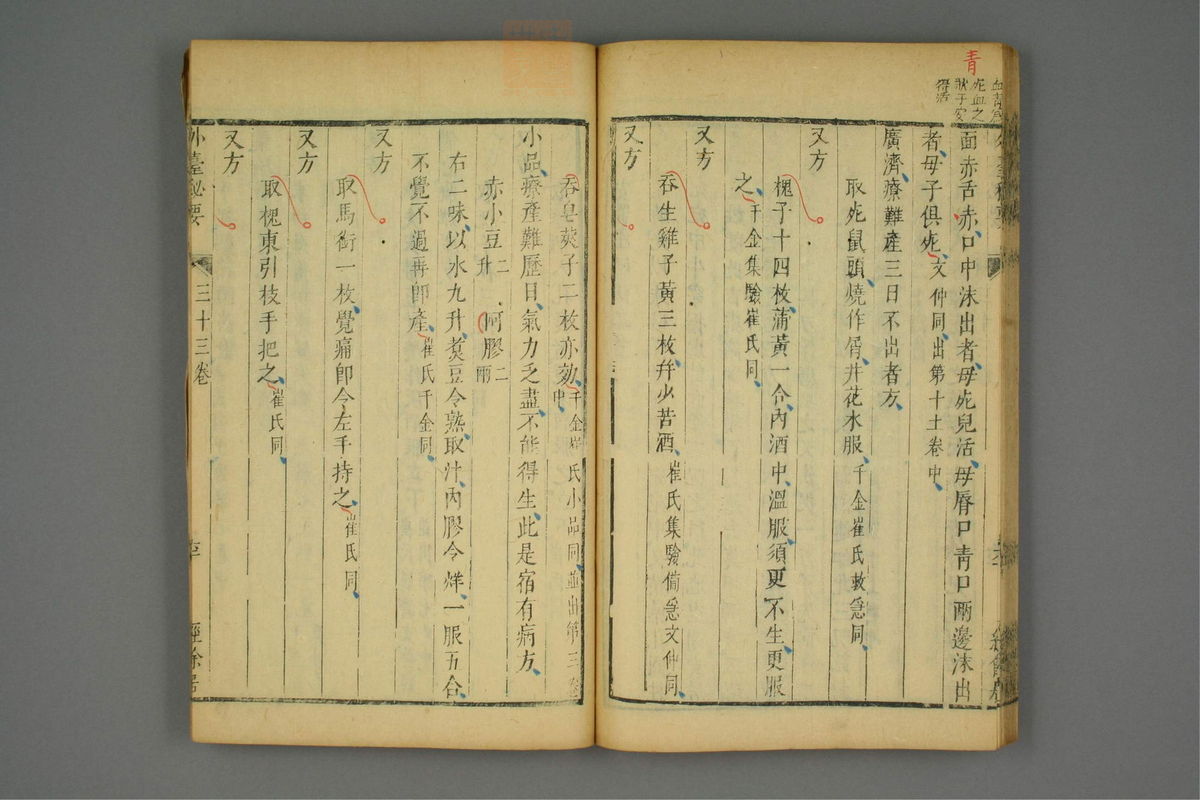 青
死血之
得活
面赤舌赤口中沫出者母死兒活母脣口青口兩邊沫出
者母子俱死文仲同出第十二卷中
廣濟療難產三日不出者方
取死鼠頭燒作屑井花水服千金崔氏救急同
又方
槐子十四枚蒲黃一合內酒中溫服須更不生更服
之千金集驗崔氏同
又方
吞生雞子黃三枚幷少苦酒崔氏集驗備急文仲同
又方
吞皂莢子二枚亦効千金崔氏小品同並出第三卷中
小品療產難歷日氣力乏盡不能得生此是宿有病方
赤小豆二升 阿膠二兩
右二味以水九升煑豆令熟取汁內膠令烊一服五合
不覺不過再卽產崔氏千金同
又方
取馬銜一枚覺痛卽令左手持之崔氏同
又方
取槐東引枝手把之崔氏同
又方
外臺秘要
三十三卷
經餘居